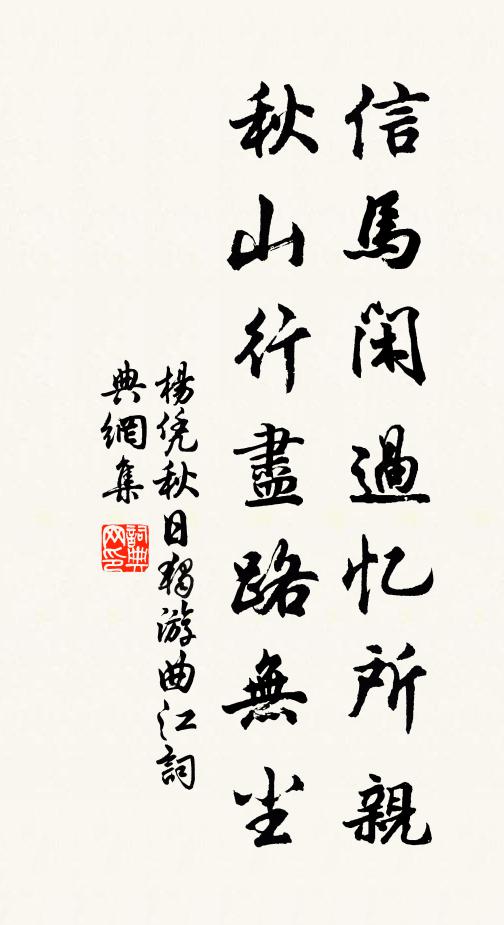 信馬闲過忆所親
秋山行盡路無尘
楊凭秋日独游曲江詞
典網集
詞典
网印